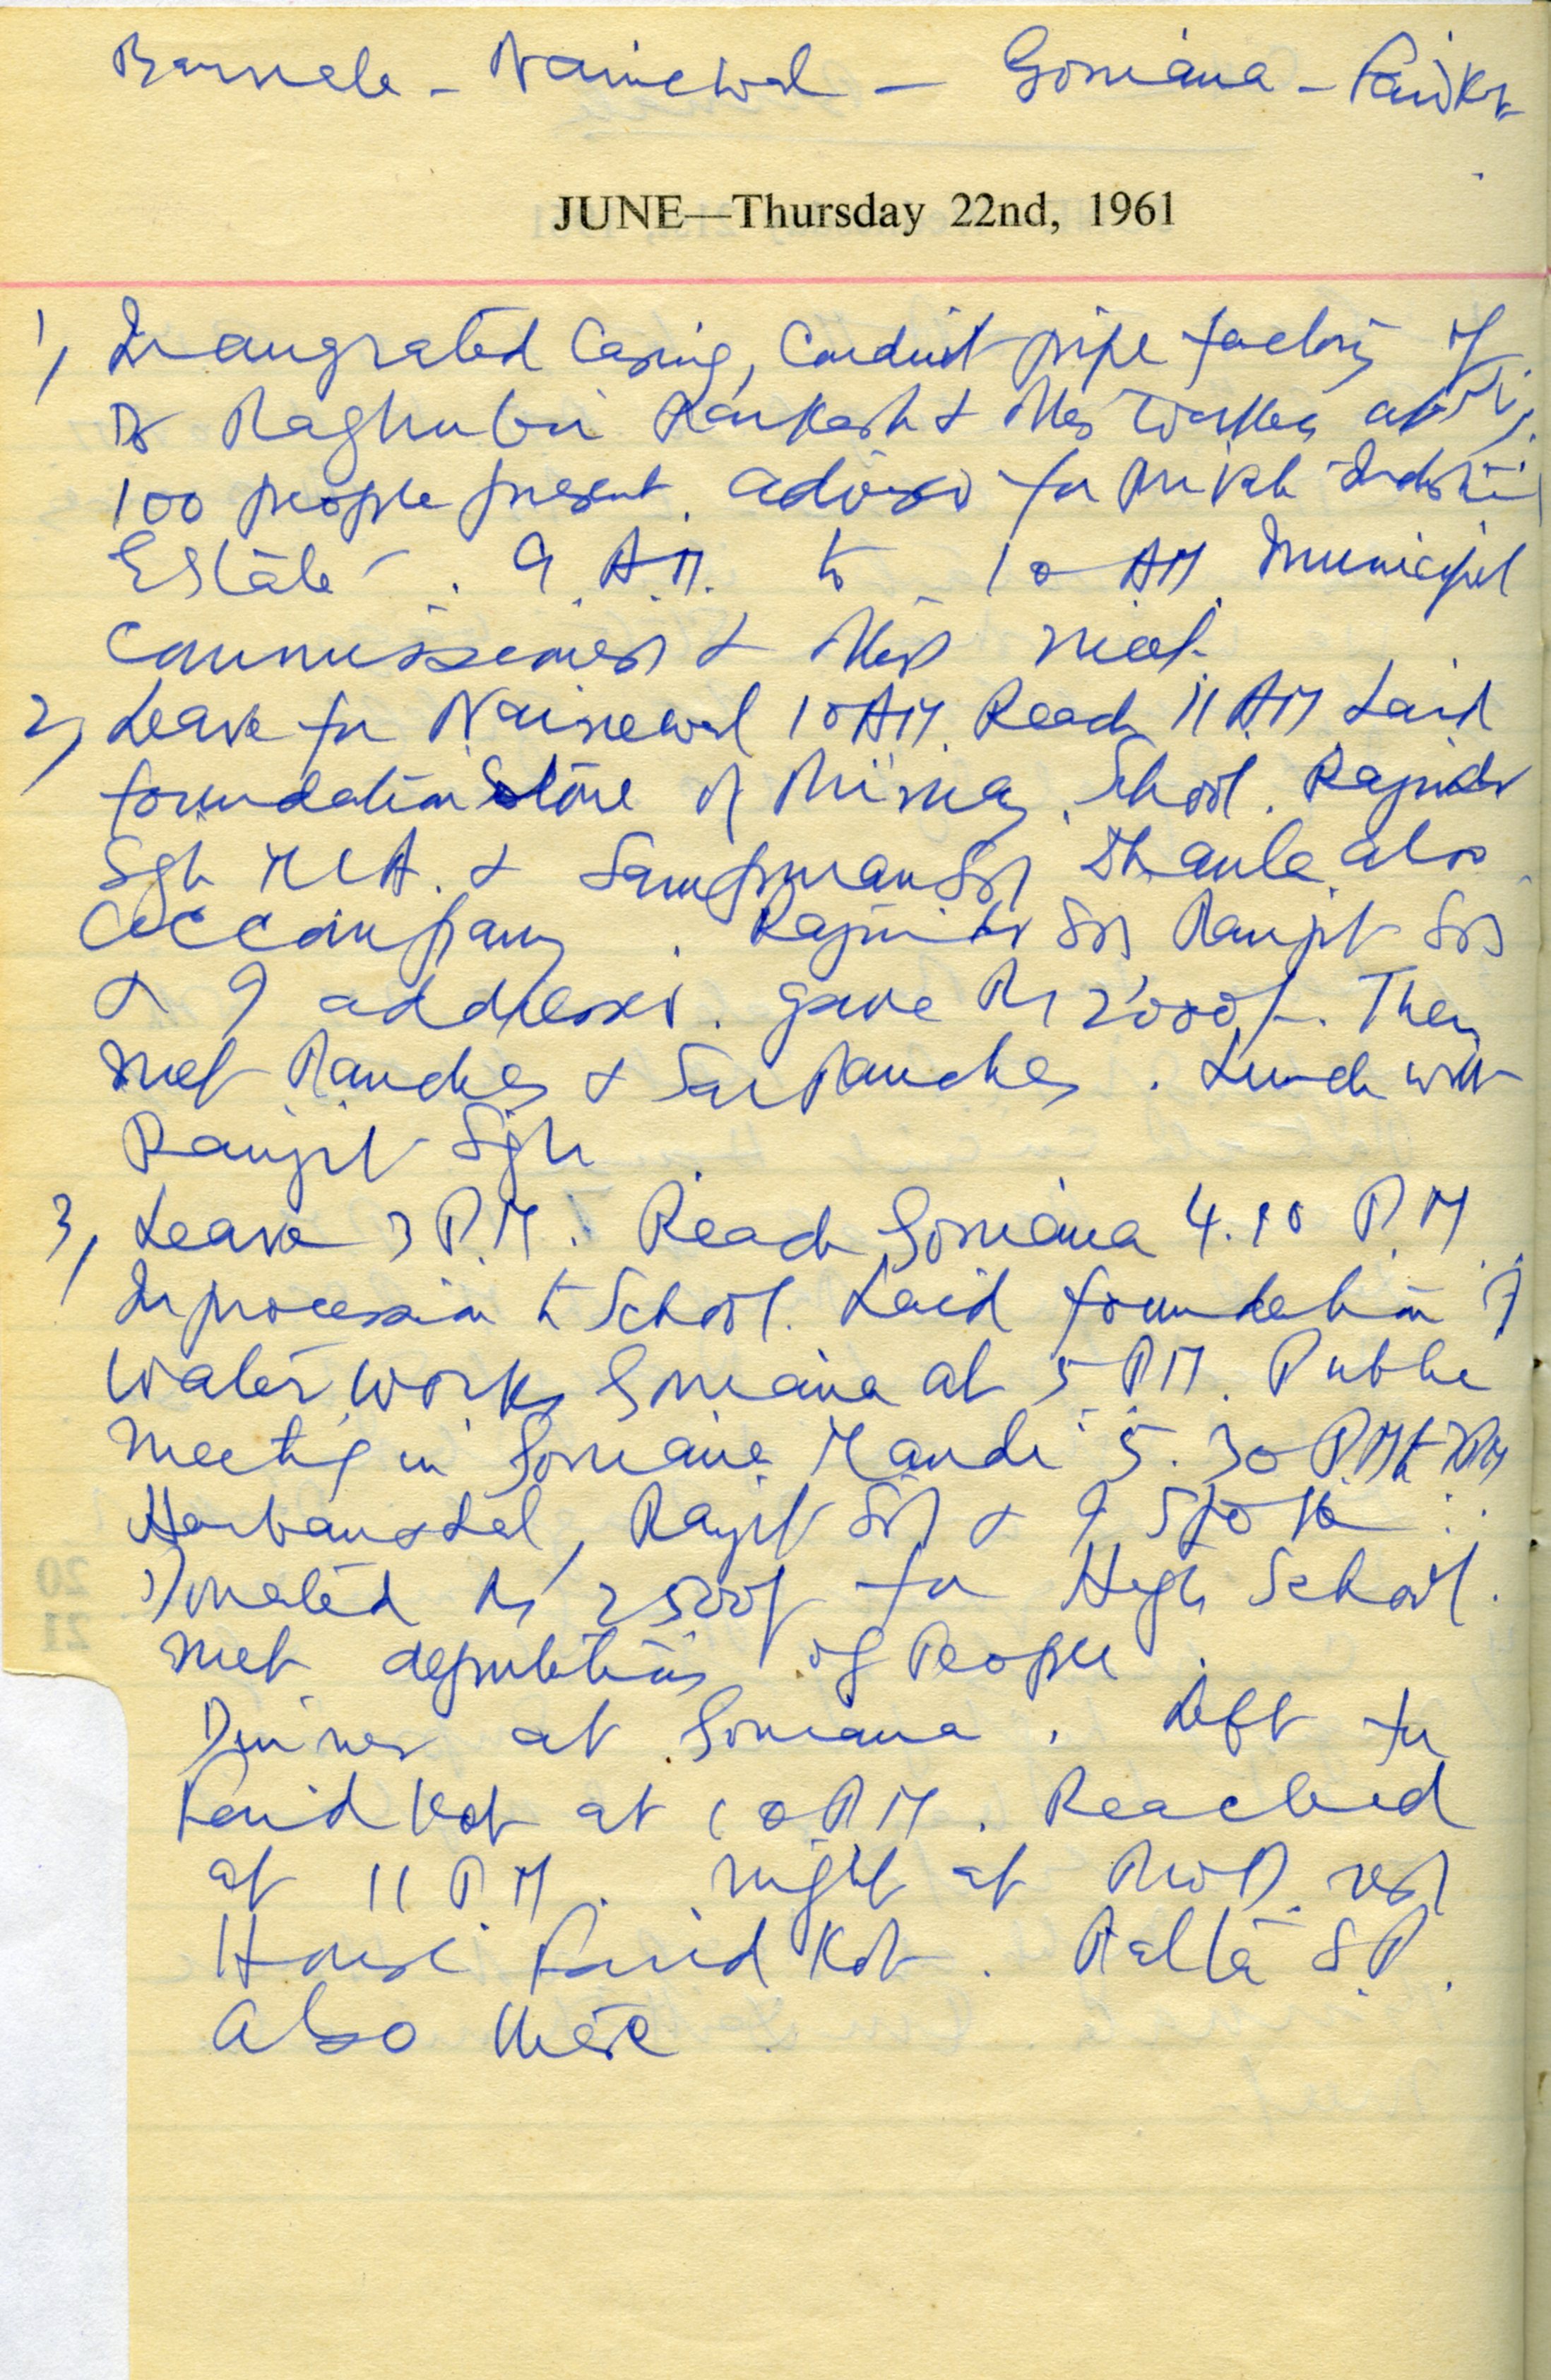 Barnala - Nainewal - Goniana - Faridkot
JUNE—Thursday 22nd, 1961
1) Inaugrated Casing, Conduit pipe factory of
Dr Raghubir Parkash &
100 people present. advised for Industrial
Estate. 9 A.M. to 10 AM Municipal
Commissioners & others meet.
2) Leave for Nainewal 10 AM. Reach 11 AM Laid
foundation stone of Primary School. Rajinder
Sgh MLA. & Sampuran Sgh Dhaula also
accompany. Rajinder Sgh Ranjit Sgh
& I addresses. gave Rs 2000/-. Then
met Panches & Sar Panches. Lunch with
Ranjit Sgh
3) Leave 3 P.M. Reach Goniana 4.10 P.M
In procession to School. Laid foundation of
Water works Goniana at 5 PM. Public
meeting in Goniana Mandi 5.30 P.M to 7 PM
Harbans Lal, Ranjit Sgh & I spoke.
Donated Rs 2500/ for High School.
met deputations of People.
Dinner at Goniana. Left for
Farid Kot at 10 PM. Reached
at 11 P.M. night at P.W.D. rest
House Farid Kot. S.P.
also there
20
21